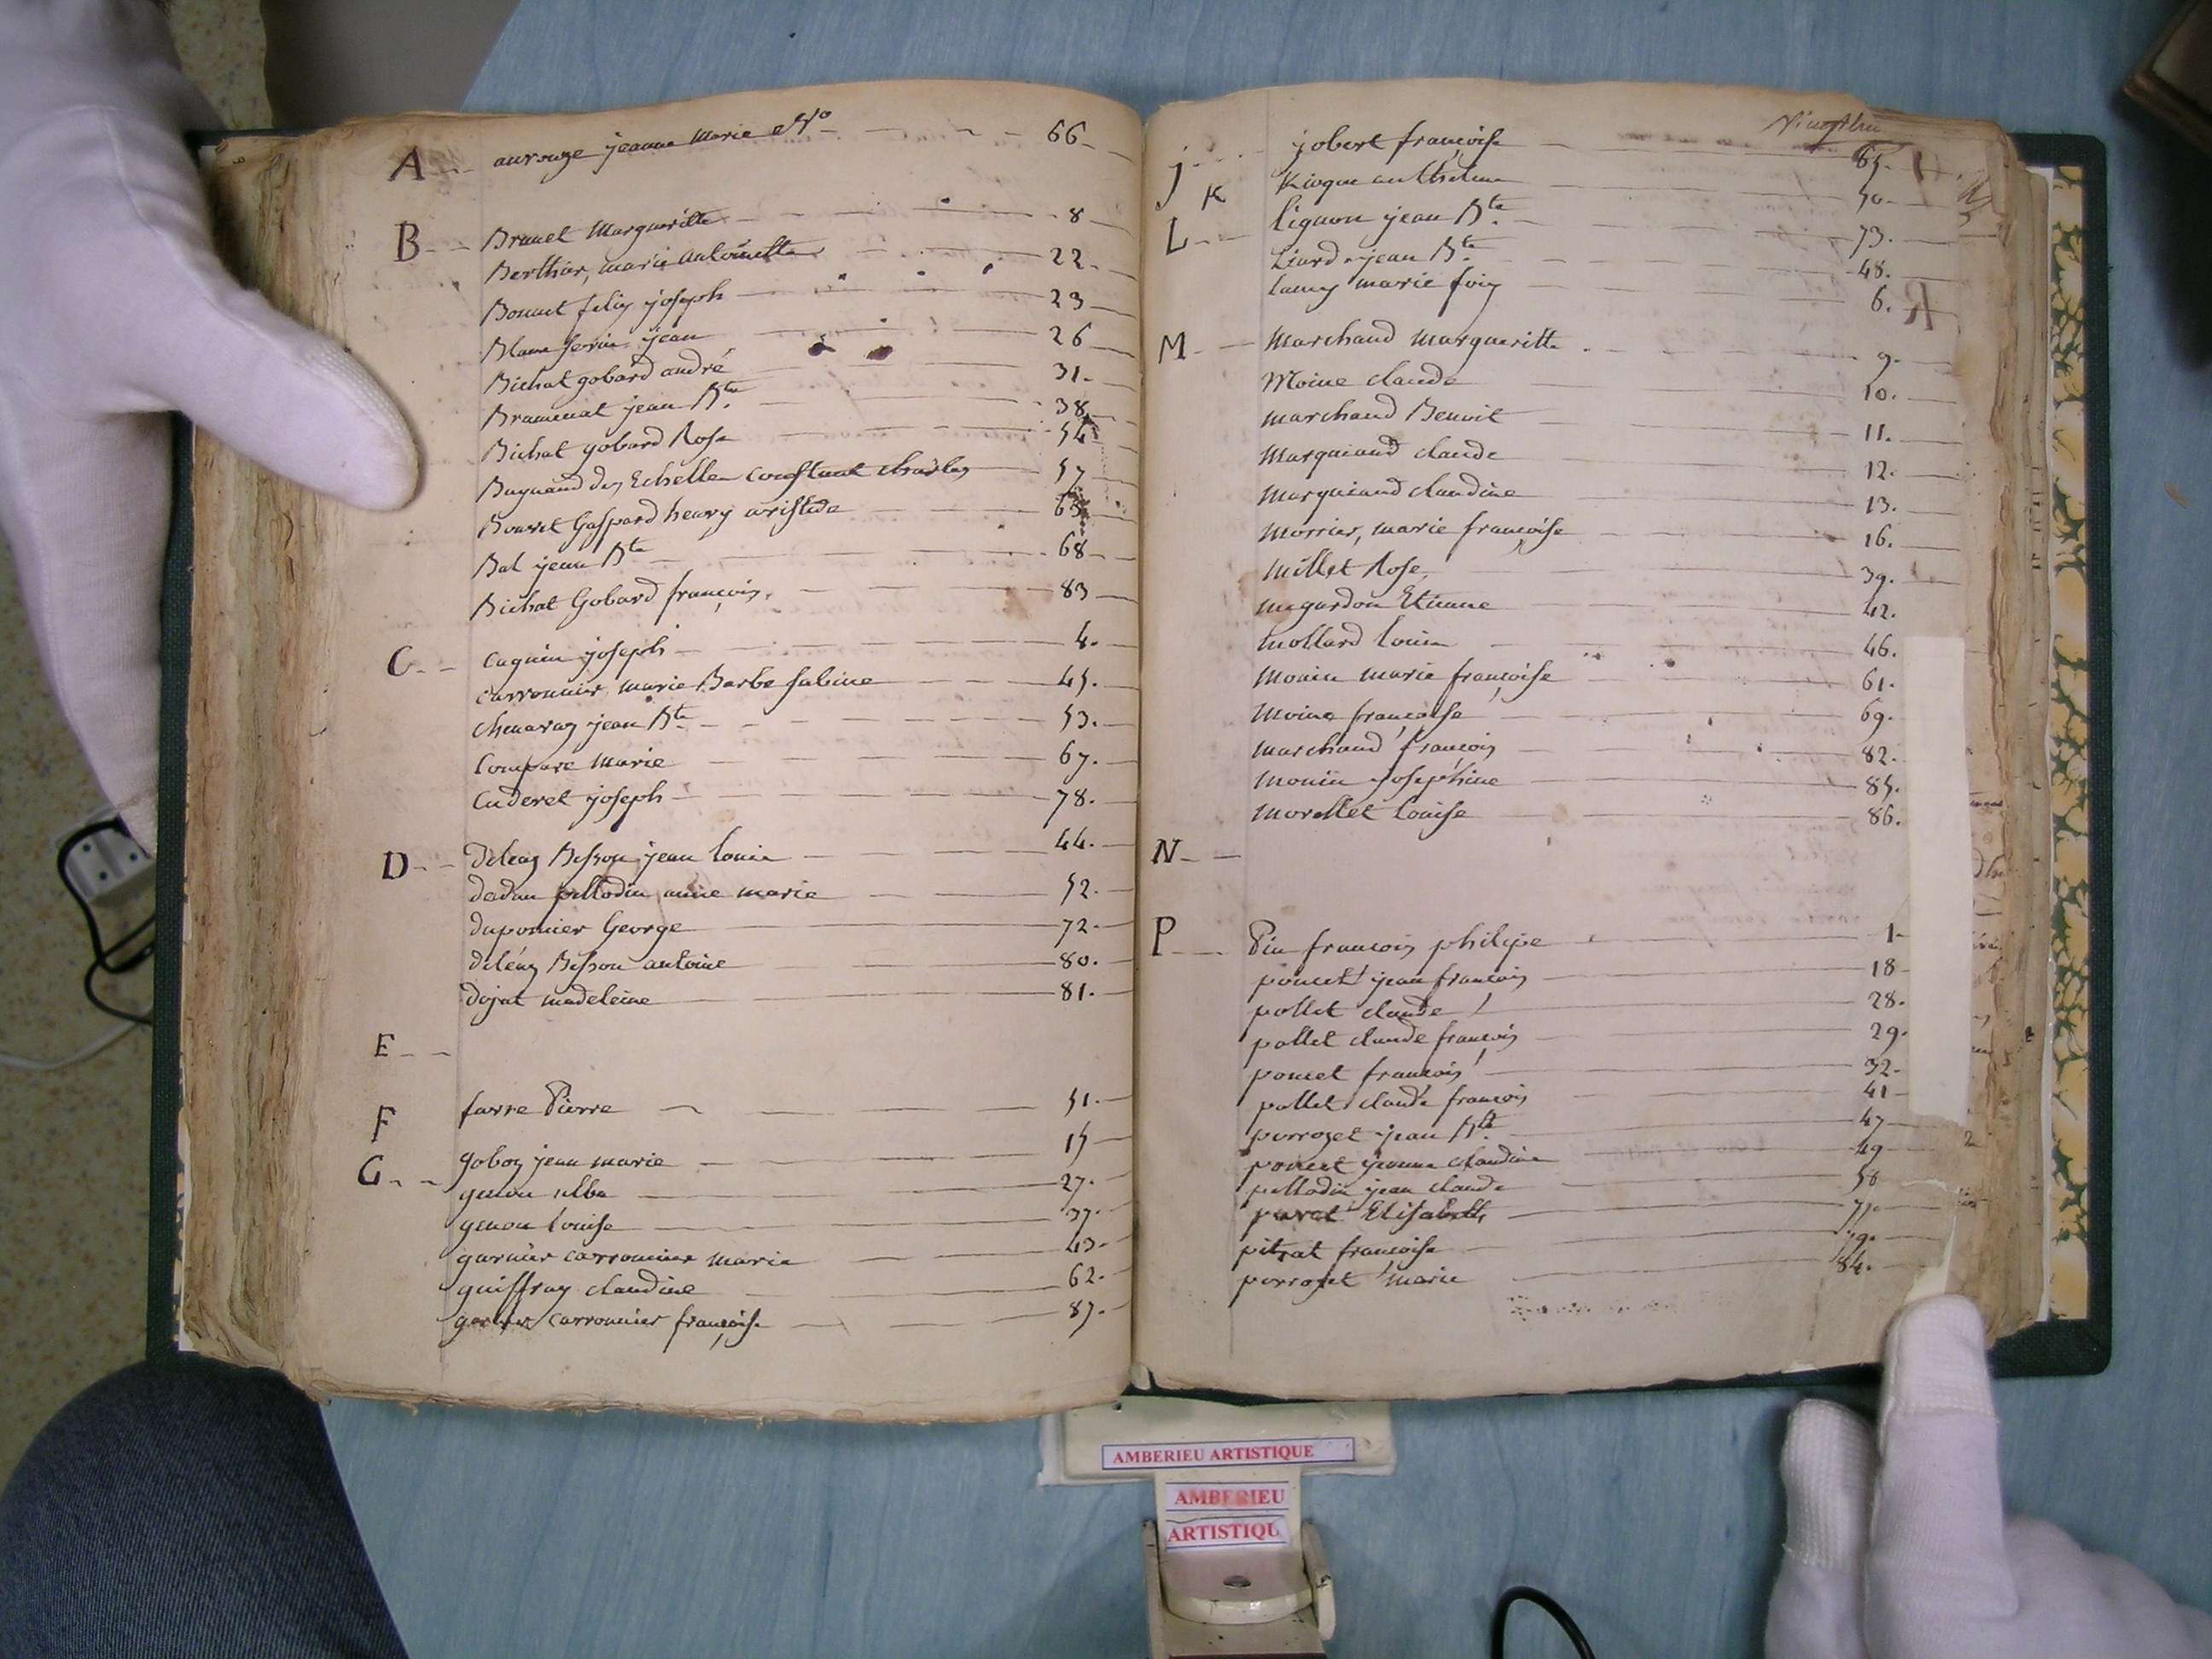 A -- aurouze jeanne Marie N° -- 66
B -- Brunet Margueritte -- 8
Berthier, marie Antoinette -- 22.
Bonnet felix joseph -- 23
Blanc jean -- 26
Bichat gobard andré -- 31.
Bramenat jean Bte -- 38
Bichat gobard Rose -- 54
Buynand des Echelles Constant charles -- 57
Bouvet Gaspard henry aristide -- 63
Bal jean Bte -- 68
Bichat Gobard françois. -- 83
C -- Cuguin joseph -- 4.
Carronnier marie Barbe Sabine -- 45.
chenavaz jean Bte -- 53.
Compare Marie -- 67.
Cuderet joseph -- 78.
D -- Bisson jean Louis -- 44.
pellodin anne marie -- 52.
dupommier George -- 72-
Bisson antoine -- 80.
dojat madeleine -- 81.
E --
F farre Pierre -- 51.
G -- goboz jean marie -- 15
genon -- 27.
genon Louise -- 37-
garnier carronnier marie -- 43-
guiffray claudine -- 62.
garnier Carronnier françoise -- 87.
j -- jobert françoise -- 65.
K anthelme -- 50-
L -- Lignon jean Bte -- 73.
Liard jean Bte -- 48.
Lamy marie foix -- 6.
M -- Marchand margueritte -- 9.
Moine claude -- 10.
marchand Benoit -- 11.
Marquiand claude -- 12.
Marquiand claudine -- 13.
Morrier, marie françoise -- 16.
Millet Rose -- 39.
Etienne -- 42.
mollard Louis -- 46.
Monin marie françoise -- 61.
Moine françoise -- 69.
marchand françois -- 82.
Monin josephine -- 85.
Morellet Louise -- 86.
N --
P -- Pin francois philipe -- 1-
poncet jean francois -- 18
pollet claude -- 28.
pollet claude françois -- 29.
poncet francois -- 32-
pollet claude francois -- 41
perrozet jean Bte -- 47
poncet jeanne claudine -- 49
pellodin jean claude -- 58
Elisabeth -- 77.
pitrat francoise -- 79.
perrozet marie -- 84.
AMBERIEU ARTISTIQUE
AMBERIEU
ARTISTIQU